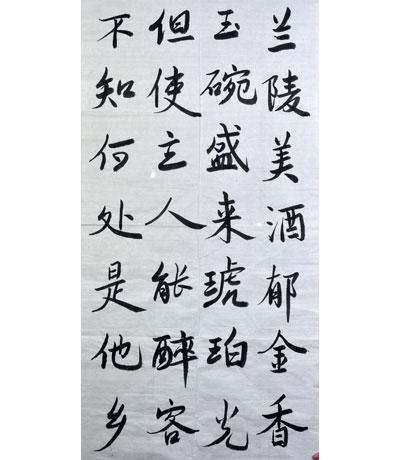 兰陵美酒郁金香
玉碗盛来琥珀光
但使主人能醉客
不知何处是他乡